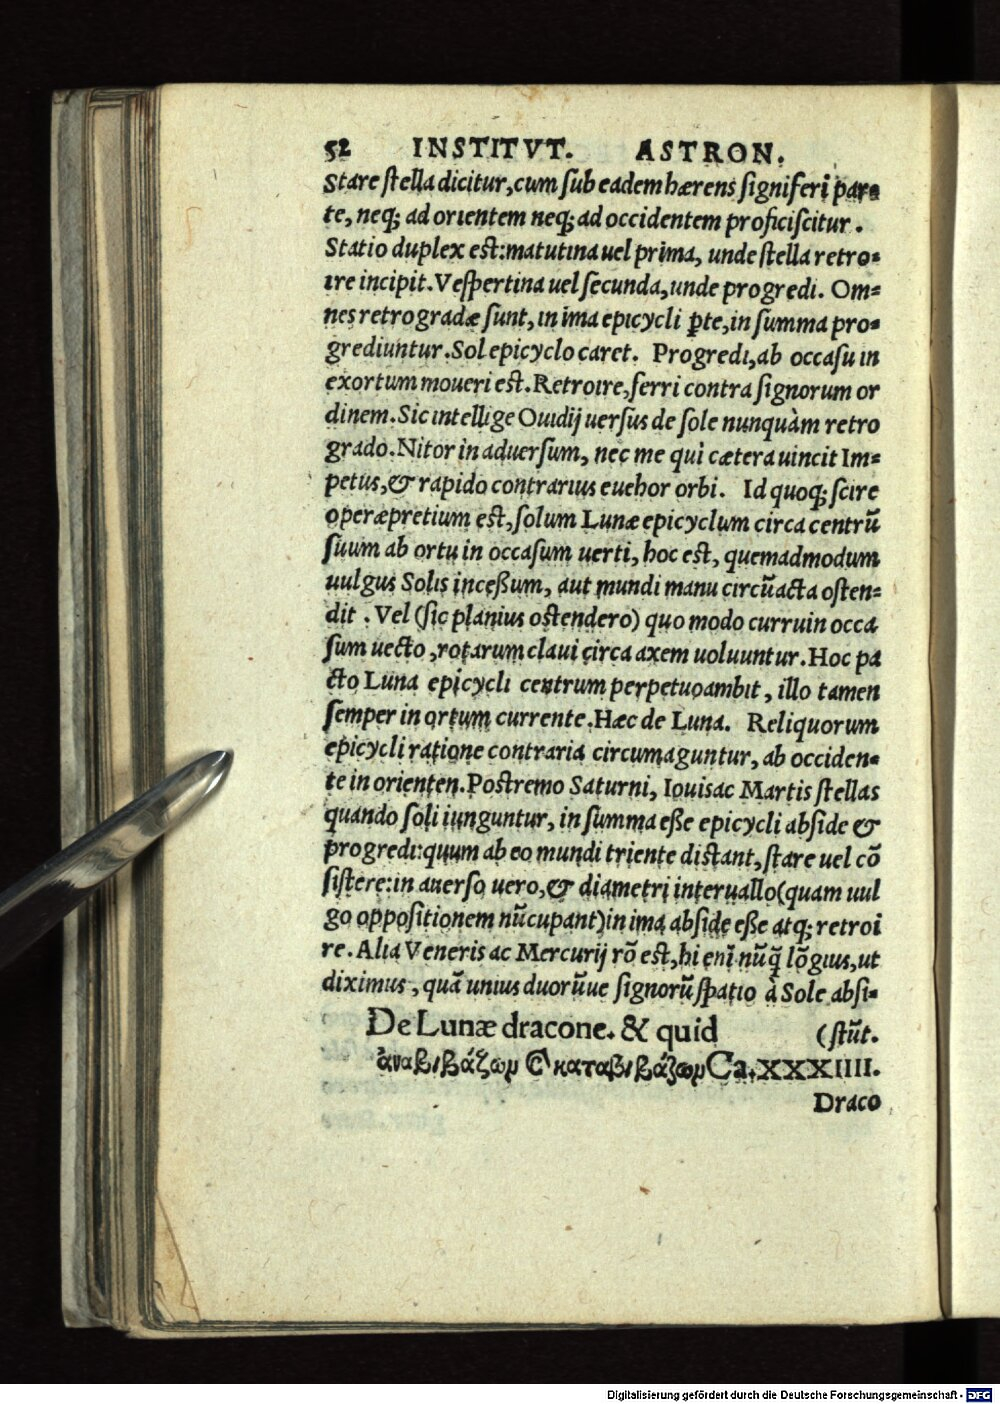 52 INSTITVT. ASTRON.
Stare ſtella dicitur, cum ſub eadem hærens ſigniferi par⸗
te, neq; ad orientem neq; ad occidentem proficiſcitur.
Statio duplex eſt: matutina uel prima, unde ſtella retro⸗
ire incipit. Veſpertina uel ſecunda, unde progredi. Om⸗
nes retrogradæ ſunt, in ima epicycli ꝑte, in ſumma pro⸗
grediuntur. Sol epicyclo caret. Progredi, ab occaſu in
exortum moueri eſt. Retroire, ferri contra ſignorum or
dinem. Sic intellige Ouidij uerſus de ſole nunquàm retro
grado. Nitor in aduerſum, nec me qui cætera uincit Im⸗
petus, & rapido contrarius euehor orbi. Id quoq; ſcire
operæpretium eſt, ſolum Lunæ epicyclum circa centrū
ſuum ab ortu in occaſum uerti, hoc eſt, quemadmodum
uulgus Solis inceßum, aut mundi manu circūacta oſten⸗
dit. Vel (ſic planius oſtendero) quo modo curru in occa
ſum uecto, rotarum claui circa axem uoluuntur. Hoc pa
cto Luna epicycli centrum perpetuo ambit, illo tamen
ſemper in ortum currente. Hæc de Luna. Reliquorum
epicycli ratione contraria circumaguntur, ab occiden⸗
te in orienten. Poſtremo Saturni, Iouis ac Martis ſtellas
quando ſoli iunguntur, in ſumma eße epicycli abſide &
progredi: quum ab eo mundi triente diſtant, ſtare uel cō
ſiſtere: in auerſo uero, & diametri interuallo (quam uul
go oppoſitionem nūcupant) in ima abſide eße atq; retroi
re. Alia Veneris ac Mercurij rō eſt, hi enī nūq̃ lōgius, ut
diximus, quā unius duorūue ſignorū ſpatio à Sole abſi⸗
De Lunæ dracone. & quid (ſtūt.
ἀναβιβάζωμ & καταβιβάζωμ Ca. XXXIIII.
Draco
Digitalisierung gefördert durch die Deutsche Forschungsgemeinschaft - DFG